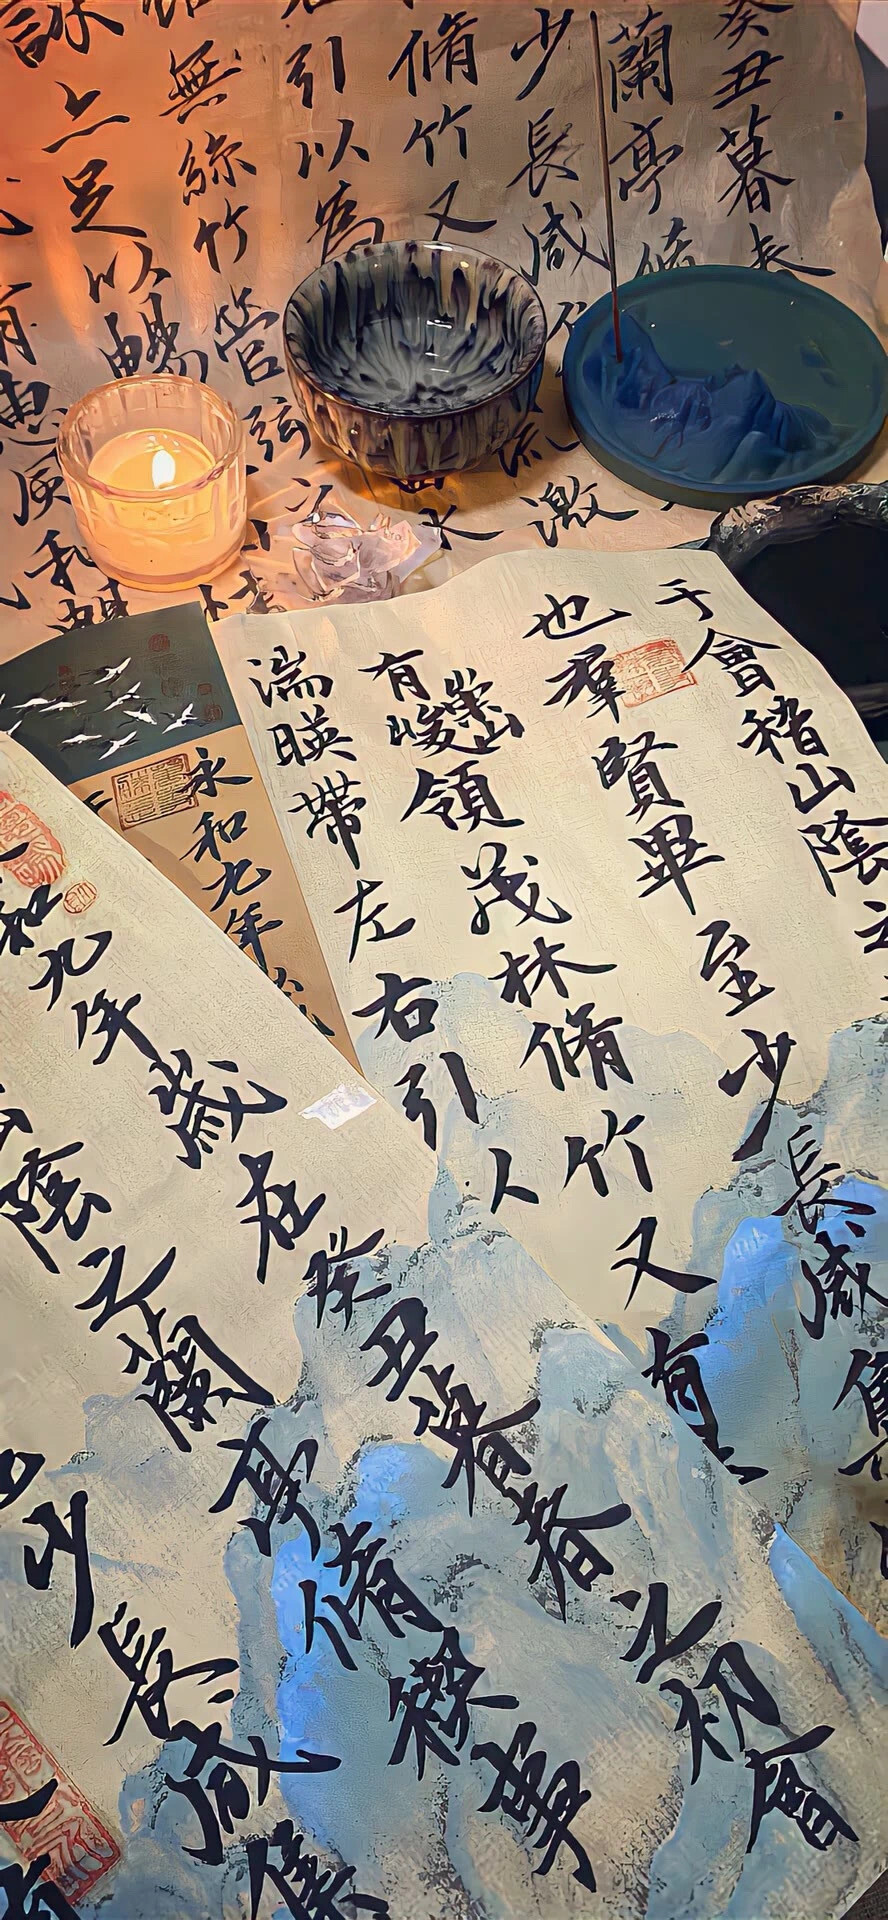 癸丑暮春
蘭亭脩
少長咸
激
脩竹又
引以為
無絲竹管弦之
詠亦足以暢
有惠風和暢
于會稽山陰之
也羣賢畢至少長咸集
有崇山峻領茂林脩竹又有
湍暎帶左右引人
永和九年歲
和九年歲在癸丑暮春之初會
陰之蘭亭脩稧事
少長咸集